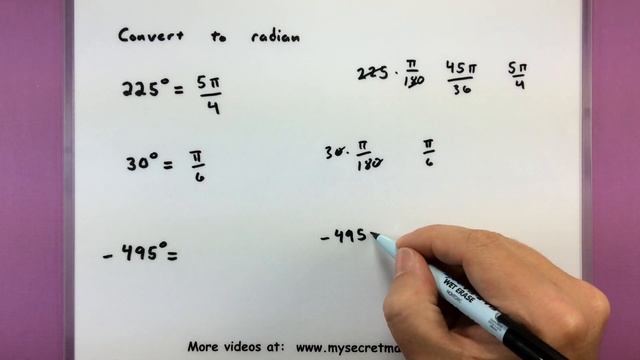 Convert to radian
225° = 5π/4
225 · π/180 45π/36 5π/4
30° = π/6
30 · π/180 π/6
- 495° =
- 495
WET ERASE
More videos at: www.mysecretma